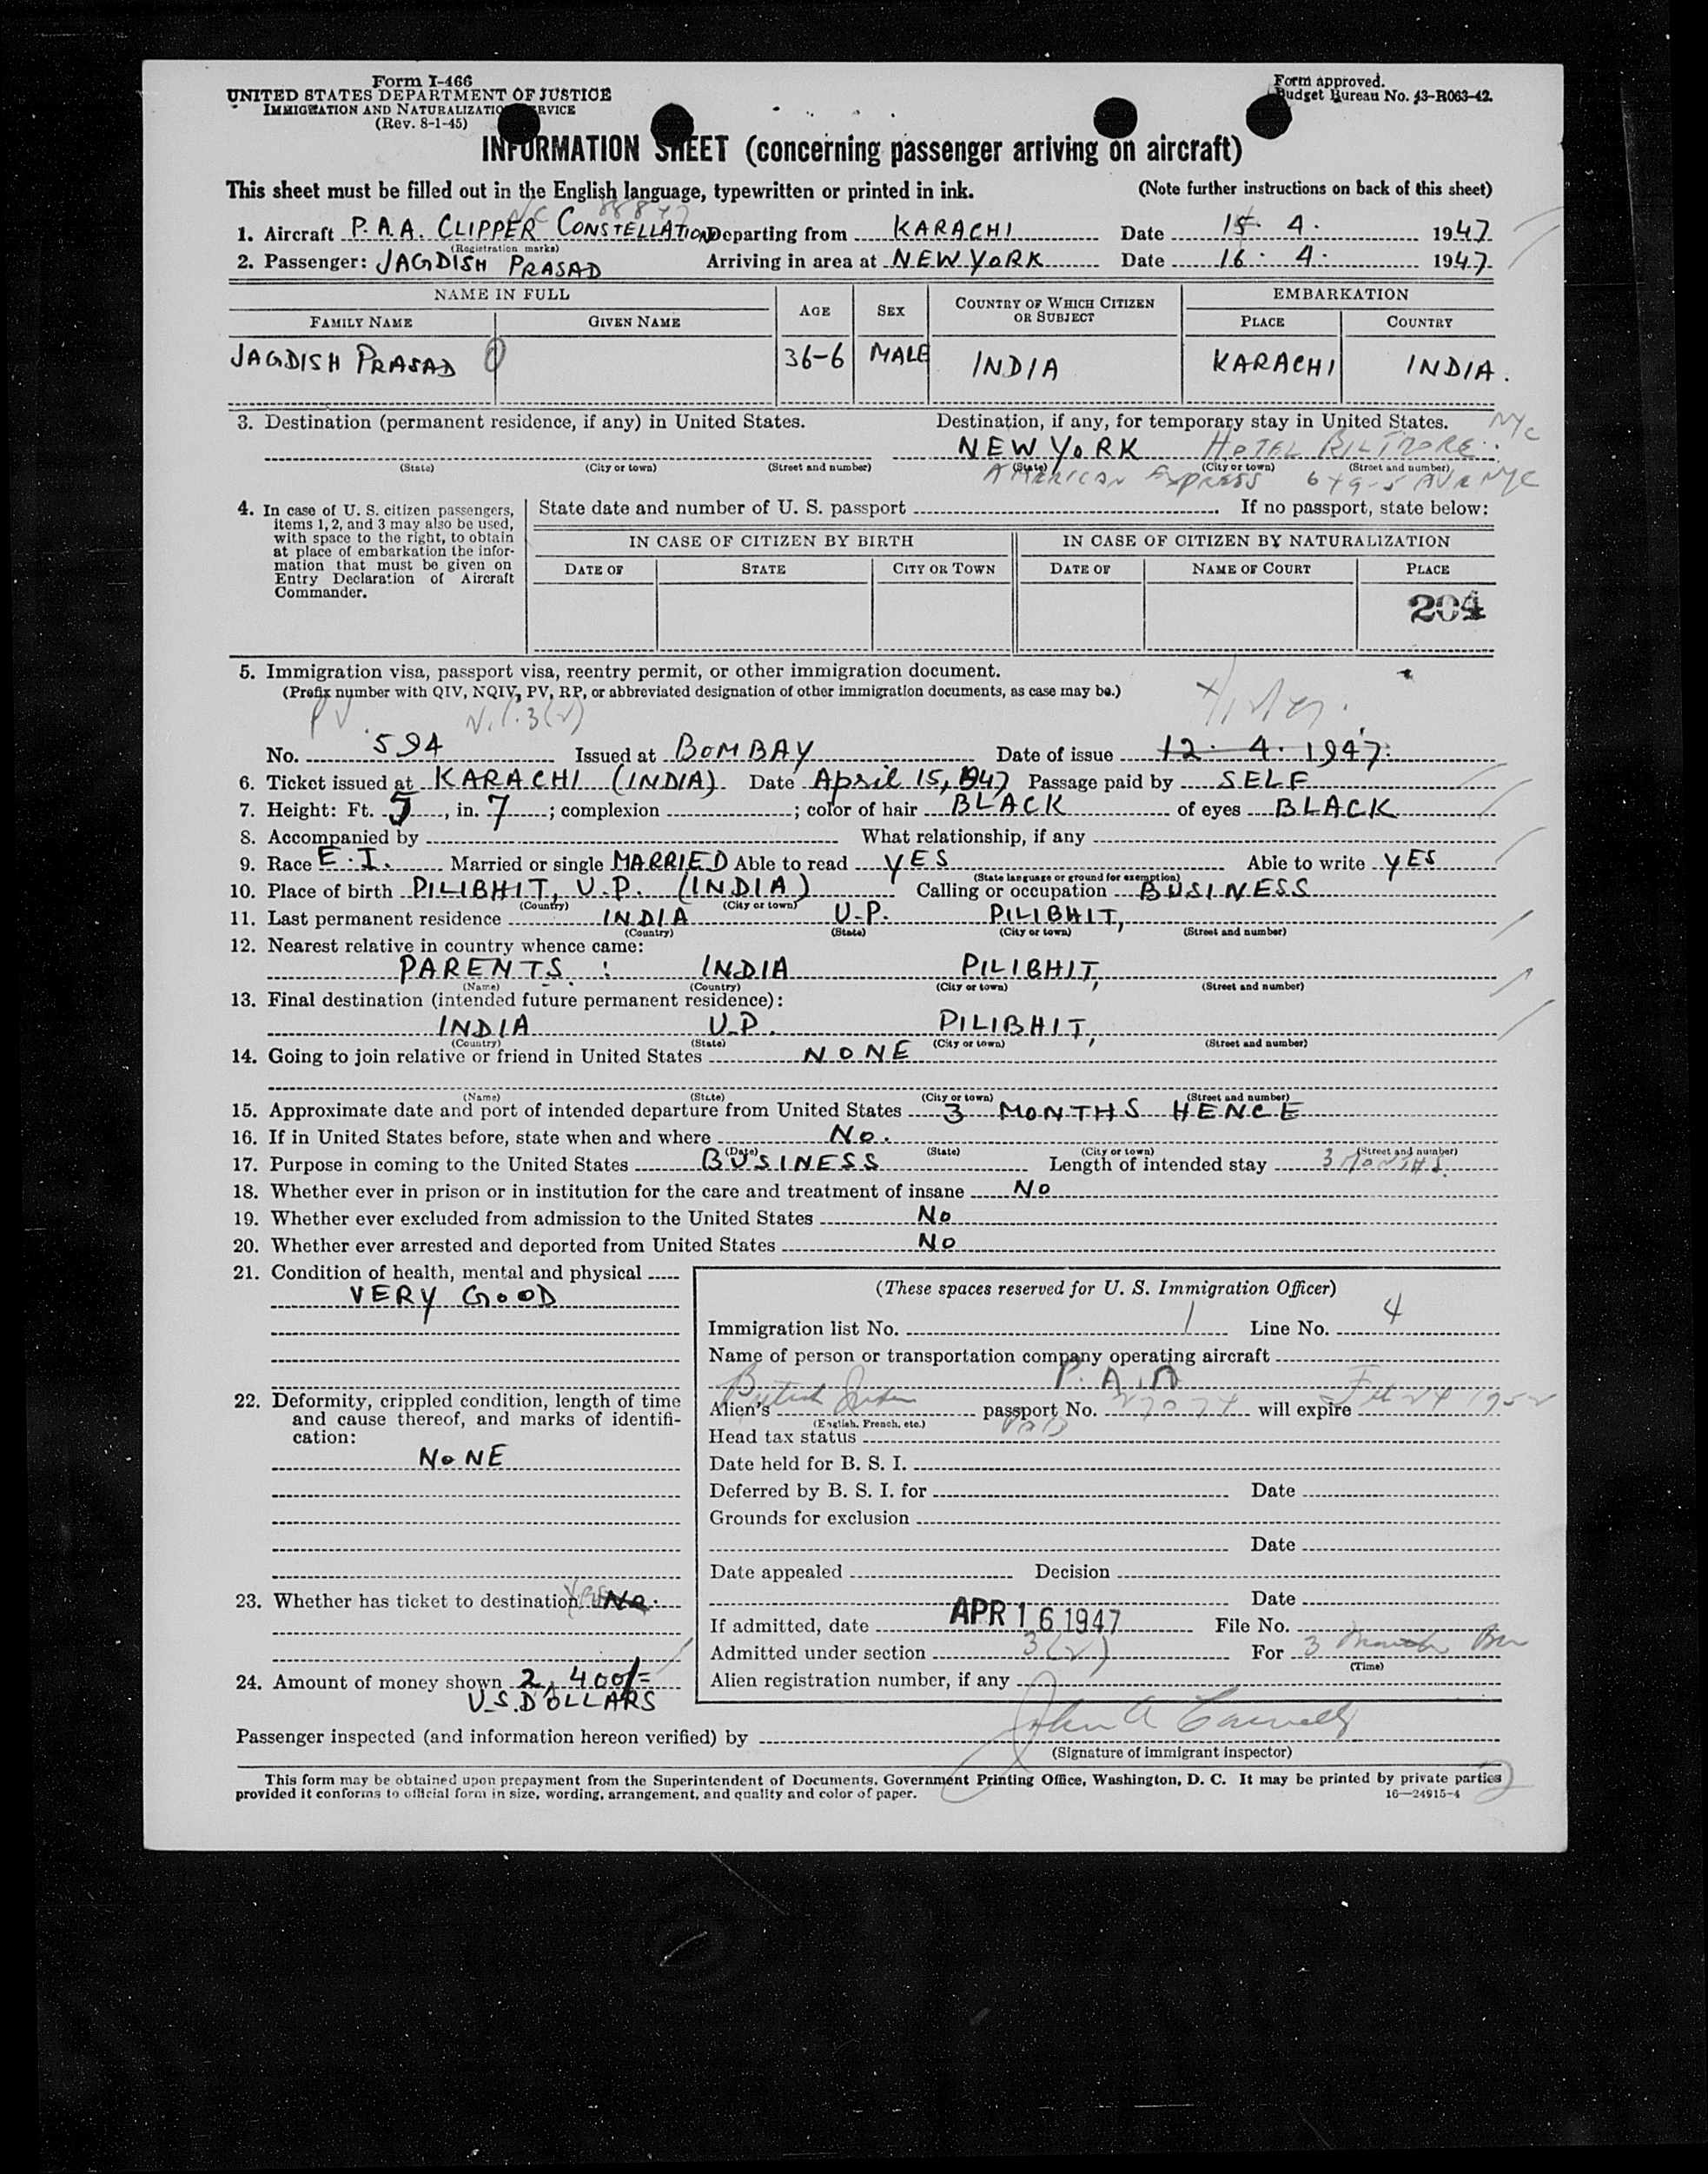 Form I-466
UNITED STATES DEPARTMENT OF JUSTICE
IMMIGRATION AND NATURALIZATION SERVICE
(Rev. 8-1-45)
Form approved.
Budget Bureau No. 43-R063-42.
INFORMATION SHEET (concerning passenger arriving on aircraft)
This sheet must be filled out in the English language, typewritten or printed in ink. (Note further instructions on back of this sheet)
NC 88847
1. Aircraft P.A.A. CLIPPER CONSTELLATION Departing from KARACHI Date 15. 4. 1947
(Registration marks)
2. Passenger: JAGDISH PRASAD Arriving in area at NEW YORK Date 16. 4. 1947
NAME IN FULL AGE SEX COUNTRY OF WHICH CITIZEN OR SUBJECT EMBARKATION
FAMILY NAME GIVEN NAME PLACE COUNTRY
JAGDISH PRASAD 0 36-6 MALE INDIA KARACHI INDIA.
3. Destination (permanent residence, if any) in United States. Destination, if any, for temporary stay in United States. NYC
NEW YORK HOTEL BILTMORE
(State) (City or town) (Street and number) (State) (City or town) (Street and number)
AMERICAN EXPRESS 649-5 AVE NYC
4. In case of U. S. citizen passengers, items 1, 2, and 3 may also be used, with space to the right, to obtain at place of embarkation the information that must be given on Entry Declaration of Aircraft Commander.
State date and number of U. S. passport If no passport, state below:
IN CASE OF CITIZEN BY BIRTH IN CASE OF CITIZEN BY NATURALIZATION
DATE OF STATE CITY OR TOWN DATE OF NAME OF COURT PLACE
204
5. Immigration visa, passport visa, reentry permit, or other immigration document.
(Prefix number with QIV, NQIV, PV, RP, or abbreviated designation of other immigration documents, as case may be.)
PV 3(2)
No. 594 Issued at BOMBAY Date of issue 12. 4. 1947.
6. Ticket issued at KARACHI (INDIA) Date April 15, 1947 Passage paid by SELF
7. Height: Ft. 5, in. 7; complexion ; color of hair BLACK of eyes BLACK
8. Accompanied by What relationship, if any
9. Race E.I. Married or single MARRIED Able to read YES Able to write YES
(State language or ground for exemption)
10. Place of birth PILIBHIT, U.P. (INDIA) Calling or occupation BUSINESS
(Country) (City or town)
11. Last permanent residence INDIA U.P. PILIBHIT,
(Country) (State) (City or town) (Street and number)
12. Nearest relative in country whence came:
PARENTS : INDIA PILIBHIT,
(Name) (Country) (City or town) (Street and number)
13. Final destination (intended future permanent residence):
INDIA U.P. PILIBHIT,
(Country) (State) (City or town) (Street and number)
14. Going to join relative or friend in United States NONE
(Name) (State) (City or town) (Street and number)
15. Approximate date and port of intended departure from United States 3 MONTHS HENCE
16. If in United States before, state when and where No.
(Date) (State) (City or town) (Street and number)
17. Purpose in coming to the United States BUSINESS Length of intended stay 3 MONTHS.
18. Whether ever in prison or in institution for the care and treatment of insane No
19. Whether ever excluded from admission to the United States No
20. Whether ever arrested and deported from United States No
21. Condition of health, mental and physical
VERY GOOD
22. Deformity, crippled condition, length of time and cause thereof, and marks of identification:
NONE
23. Whether has ticket to destination Yes No.
24. Amount of money shown 2,400/=
U.S. DOLLARS
(These spaces reserved for U. S. Immigration Officer)
Immigration list No. 1 Line No. 4
Name of person or transportation company operating aircraft
P.A.A
British Indian
Alien's passport No. 27074 will expire Feb 24 1952
(English, French, etc.)
Head tax status Paid
Date held for B. S. I.
Deferred by B. S. I. for Date
Grounds for exclusion
Date
Date appealed Decision
Date
If admitted, date APR 16 1947 File No.
Admitted under section 3(2) For 3 months
(Time)
Alien registration number, if any
Passenger inspected (and information hereon verified) by John A
(Signature of immigrant inspector)
This form may be obtained upon prepayment from the Superintendent of Documents, Government Printing Office, Washington, D. C. It may be printed by private parties
provided it conforms to official form in size, wording, arrangement, and quality and color of paper. 16—24915-4